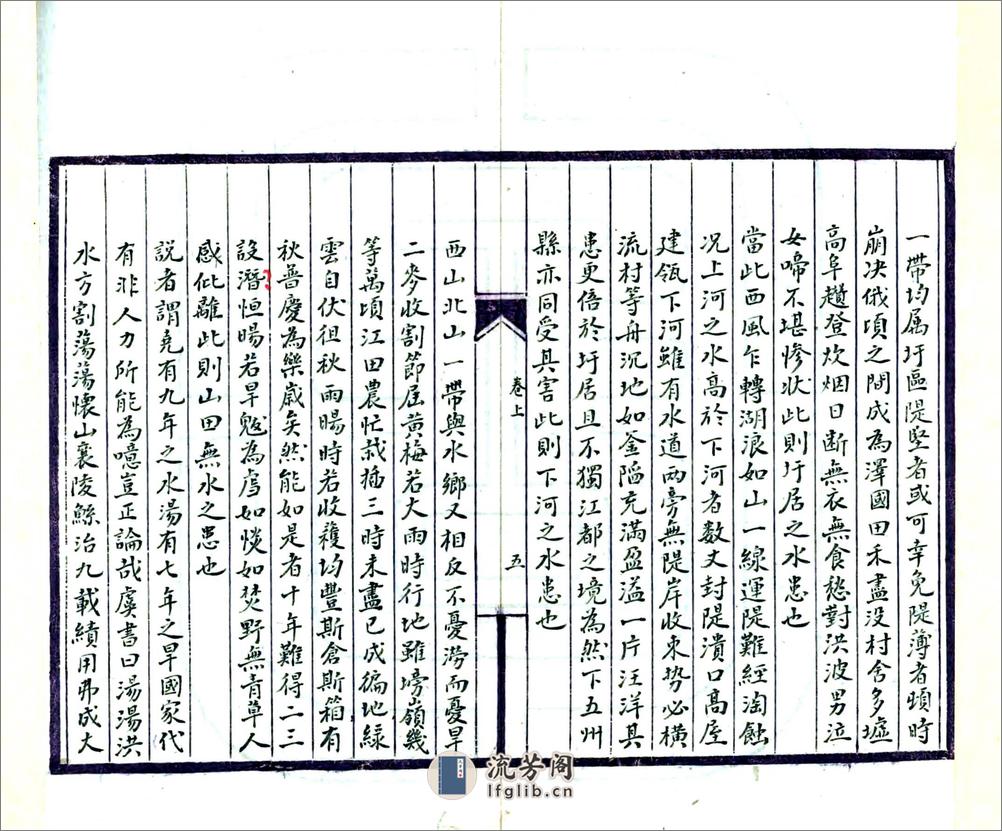 一帶均属圩區隄堅者或可幸免隄薄者頃時
崩决俄頃之間成為澤國田禾盡没村舍多墟
高阜趲登炊烟日断無衣無食愁對洪波男泣
女啼不堪惨状此則圩居之水患也
當此西風乍轉湖浪如山一線運隄難經淘蝕
况上河之水高於下河者数丈封隄潰口高屋
建瓴下河雖有水道两旁無隄岸收束势必横
流村等舟沉地如釜陷充滿盈溢一片汪洋其
患更倍於圩居且不獨江都之境為然下五州
縣亦同受其害此則下河之水患也
卷上
五
西山北山一帶與水鄉又相反不憂澇而憂旱
二麥收割節届黄梅若大雨時行地雖塝嶺幾
等萬頃江田農忙栽插三時未盡已成徧地緑
雲自伏徂秋雨暘時若收穫均豐斯倉斯箱有
秋普慶為樂歲矣然能如是者十年難得二三
設潛恒暘若旱魃為虐如惔如焚野無青草人
感仳離此則山田無水之患也
説者謂堯有九年之水湯有七年之旱國家代
有非人力所能為噫豈正論哉虞書曰湯湯洪
水方割蕩蕩懷山襄陵鯀治九載績用弗成大
流芳阁
lfglib.cn